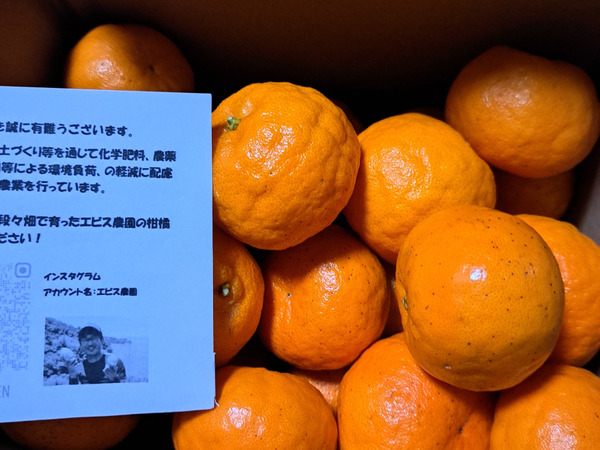 を誠に有難うございます。
土づくり等を通じて化学肥料、農薬
等による環境負荷、の軽減に配慮
農業を行っています。
段々畑で育ったエビス農園の柑橘
ださい！
インスタグラム
アカウント名：エビス農園
EN